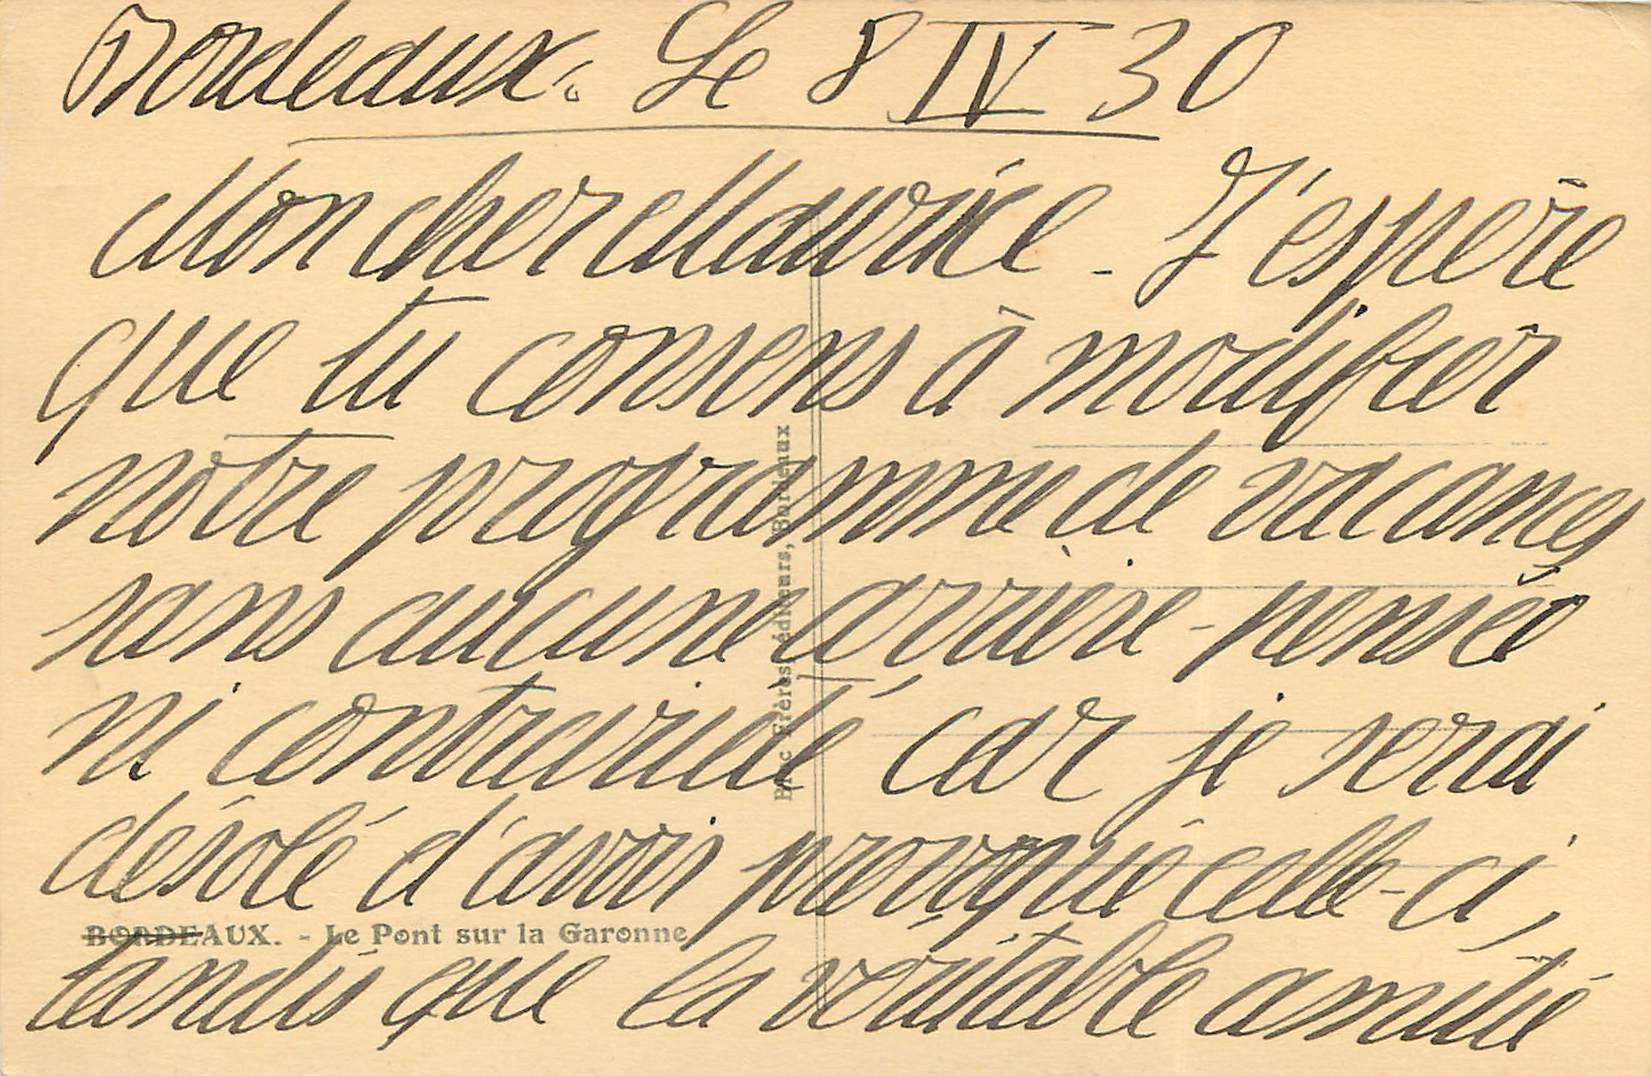 Bordeaux. Le 8 IV 30
Mon cher Maurice - J'espère
que tu consens à modifier
notre programme de vacances
sans aucune arrière-pensée
ni contrariété car je serai
désolé d'avoir provoqué celle-ci,
BORDEAUX. - Le Pont sur la Garonne
tandis que la véritable amitié
Frères, éditeurs, Bordeaux